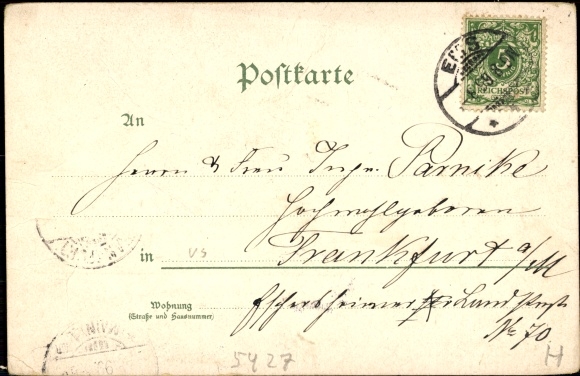 Postkarte
5
REICHSPOST
EMS
An
Herrn & Frau Ingr. Parnike
Hochwohlgeboren
in Frankfurt a/M
VS
Wohnung
(Straße und Hausnummer)
Eschersheimer Landstraße
No 70
5427
H